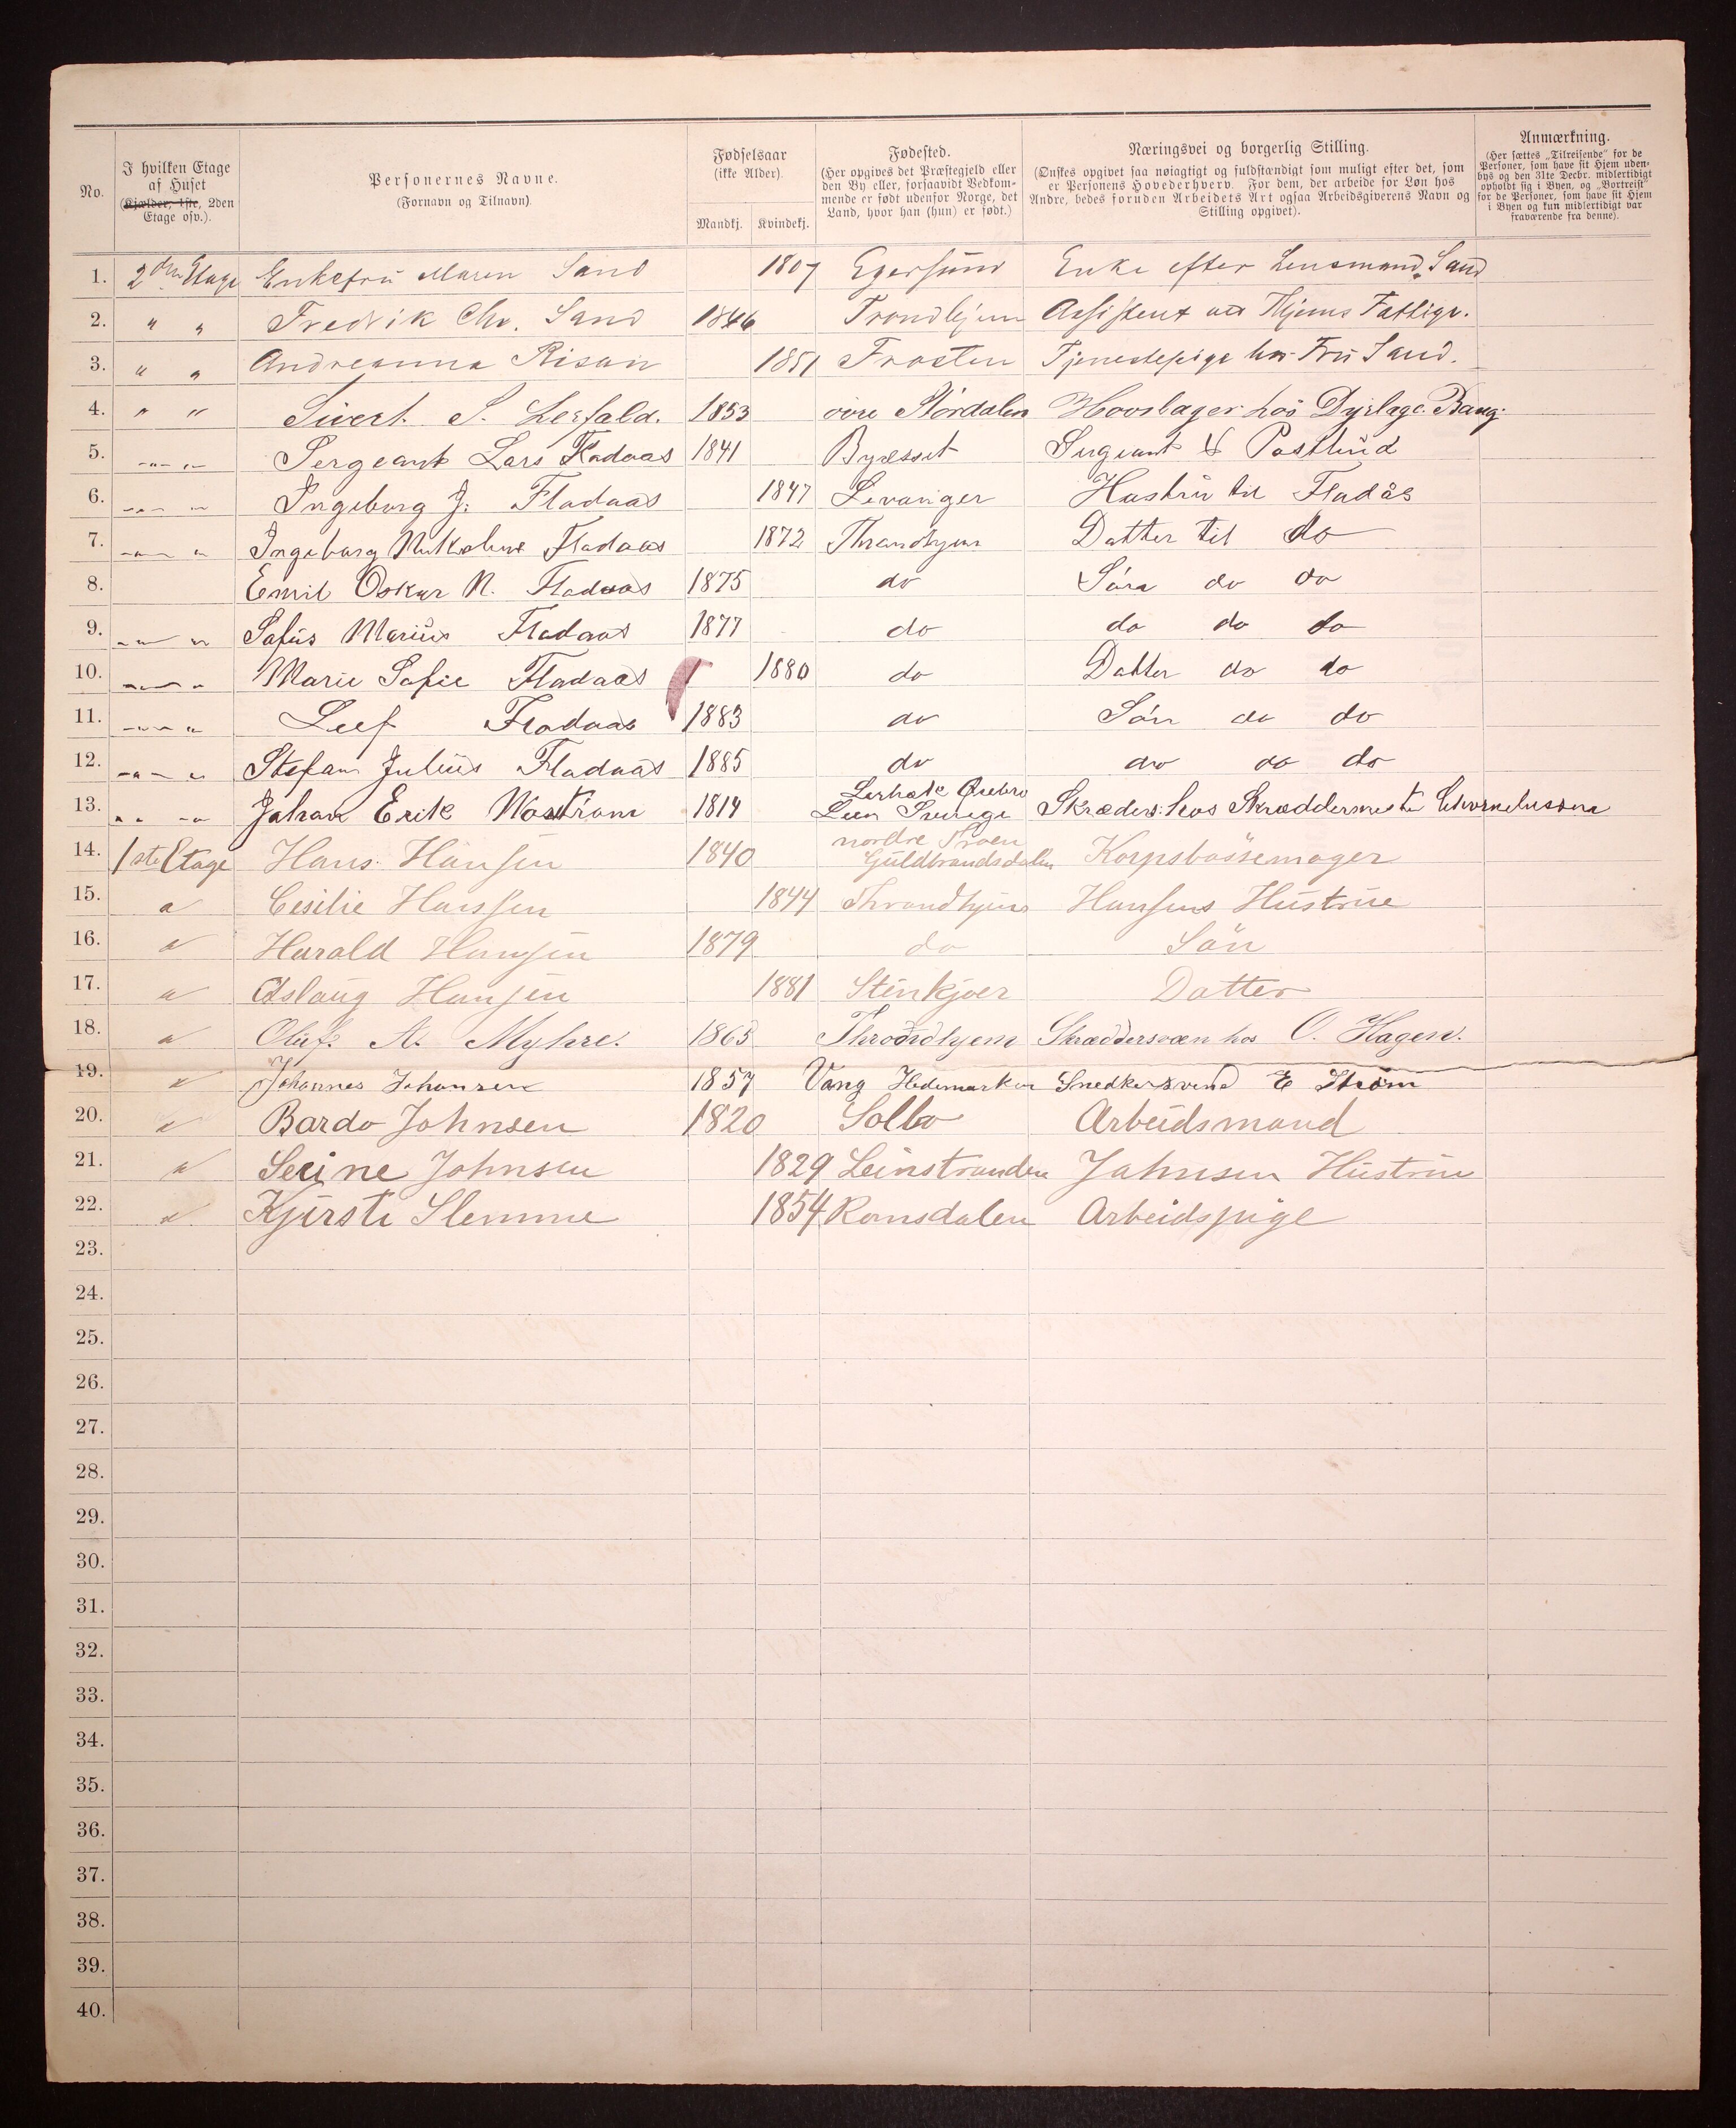 No.
I hvilken Etage
af Huset
(Kjælder, 1ste, 2den
Etage osv.).
Personernes Navne.
(Fornavn og Tilnavn).
Fødselsaar
(ikke Alder).
Mandkj. Kvindekj.
Fødested.
(Her opgives det Præstegjeld eller
den By eller, forsaavidt Vedkom-
mende er født udenfor Norge, det
Land, hvor han (hun) er født.)
Næringsvei og borgerlig Stilling.
(Ønskes opgivet saa nøiagtigt og fuldstændigt som muligt efter det, som
er Personens Hovederhverv. For dem, der arbeide for Løn hos
Andre, bedes foruden Arbeidets Art ogsaa Arbeidsgiverens Navn og
Stilling opgivet).
Anmærkning.
(Her sættes „Tilreisende" for de
Personer, som have sit Hjem uden-
bys og den 31te Decbr. midlertidigt
opholdt sig i Byen, og „Bortreist"
for de Personer, som have sit Hjem
i Byen og kun midlertidigt var
fraværende fra denne).
1. 2den Etage Enkefru Maren Sand 1807 Egersund Enke efter Lensmand Sand
2. " " Fredrik Chr. Sand 1846 Trondhjem Assistent Thjems Fattigv.
3. " " Andreanna Risan 1851 Frosten Tjenestepige hos Fru Sand.
4. " " Sivert S. Lerfald. 1853 övre Stördalen Hovslager hos Dyrlæge Bang.
5. " " Sergeant Lars Fladaas 1841 Bynesset Sergeant & Postbud
6. " " Ingeborg J. Fladaas 1847 Levanger Hustru til Fladås
7. " " Ingeborg Nikoline Fladaas 1872 Throndhjem Datter til do
8. Emil Oskar N. Fladaas 1875 do Sön do do
9. " " Sofus Marius Fladaas 1877 do do do do
10. " " Marie Sofie Fladaas 1880 do Datter do do
11. " " Leif Fladaas 1883 do Sön do do
12. " " Stefan Julius Fladaas 1885 do do do do
13. " " Johan Erik Noström 1814 Lerbäk Örebro
Leen Sverige Skræders. hos Skræddermester
14. 1ste Etage Hans Hansen 1840 nordre Froen
Guldbrandsdalen Korpsbössemager
15. " Cesilie Hanssen 1844 Throndhjem Hansens Hustrue
16. " Harald Hansen 1879 do Sön
17. " Aslaug Hansen 1881 Stenkjær Datter
18. " Oluf A. Myhre. 1863 Throndhjem Skræddersvæn hos O. Hagen.
19. " Johannes Johansen 1857 Vang Hedemarken Snedkersvend E Ström
20. " Bardo Johnsen 1820 Selbo Arbeidsmand
21. " Serine Johnsen 1829 Leinstranden Johnsen Hustrue
22. " Kjersti Slemme 1854 Romsdalen Arbeidspige
23.
24.
25.
26.
27.
28.
29.
30.
31.
32.
33.
34.
35.
36.
37.
38.
39.
40.